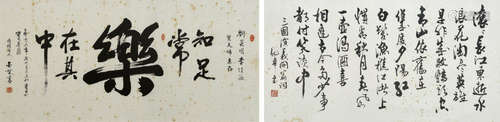 知足
常
樂
在其
中
滾滾長江東逝水
浪花淘盡英雄
是非成敗轉頭空
青山依舊在
幾度夕陽紅
白髮漁樵江渚上
慣看秋月春風
一壺濁酒喜
相逢古今多少事
都付笑談中
三國演義開篇詞